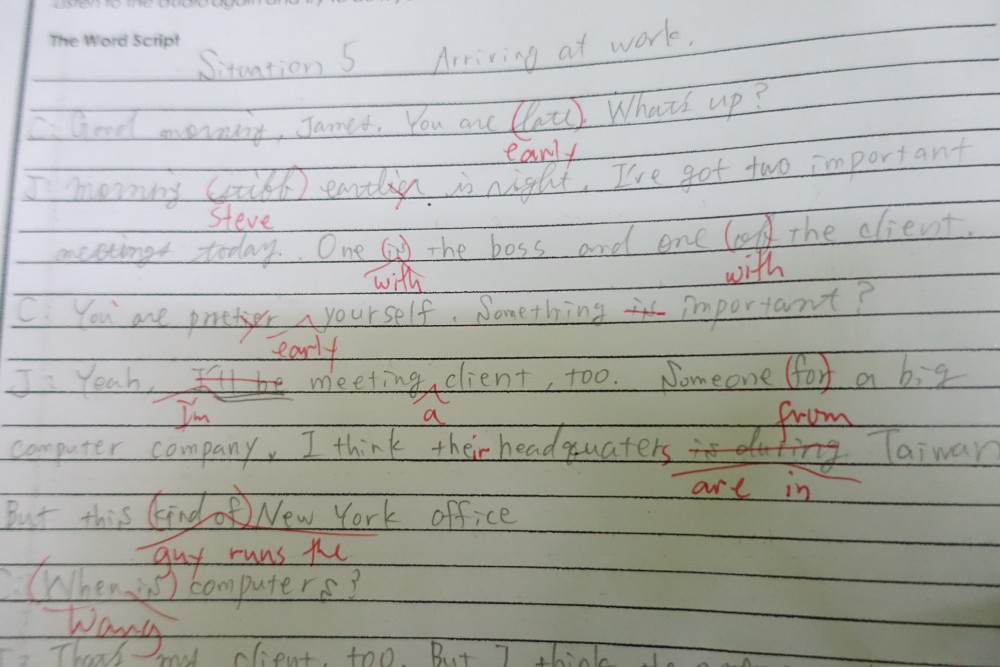 Listen to the audio again and try to
The Word Script
Situation 5 Arriving at work.
C: Good morning, James. You are (late). What's up?
early
J: morning (still) earlier is right. I've got two important
Steve
meetings today. One (is) the boss and one (of) the client.
with with
C: You are pretty yourself. Something is important?
early
J: Yeah, I'll be meeting client, too. Someone (for) a big
I'm a from
computer company, I think their headquaters is during Taiwan
are in
But this (kind of) New York office
guy runs the
C: (When is) computers?
Wang
J: That's my client, too. But I think